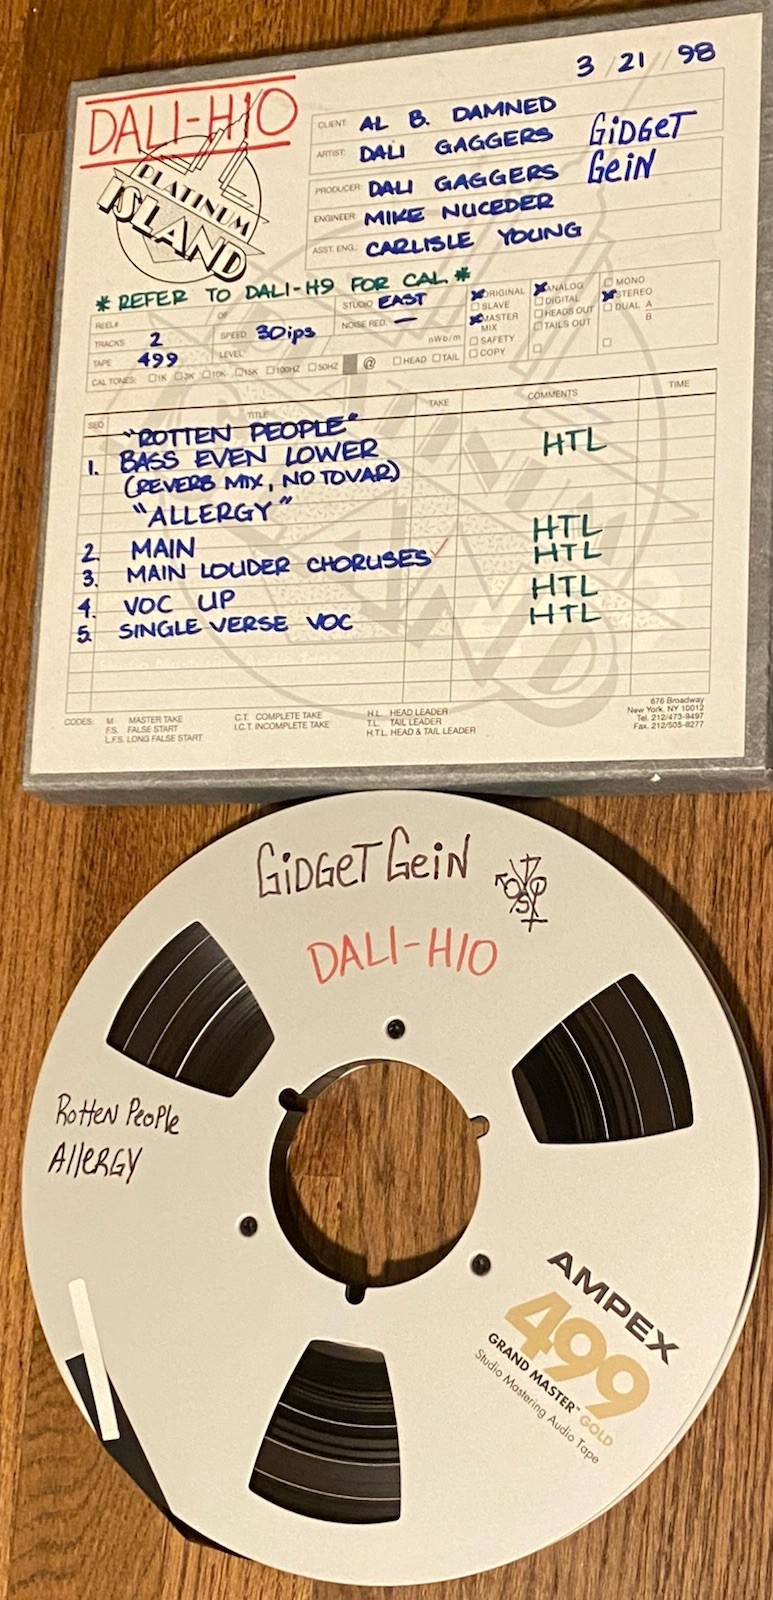 3/21/98
DALI-H10
PLATINUM
ISLAND
CLIENT: AL B. DAMNED
ARTIST: DALI GAGGERS GiDGET
PRODUCER: DALI GAGGERS GeiN
ENGINEER: MIKE NUCEDER
ASST. ENG.: CARLISLE YOUNG
* REFER TO DALI-H9 FOR CAL. *
REEL# OF STUDIO EAST
TRACKS 2 SPEED 30ips NOISE RED. —
TAPE 499 LEVEL nWb/m
ORIGINAL ANALOG MONO
SLAVE DIGITAL STEREO
MASTER HEADS OUT DUAL A
MIX TAILS OUT B
SAFETY
COPY
CAL TONES: 1K 10K 15K 100HZ 50HZ @ HEAD TAIL
SEQ TITLE TAKE COMMENTS TIME
"ROTTEN PEOPLE"
1. BASS EVEN LOWER HTL
(REVERB MIX, NO TOVAR)
"ALLERGY"
2. MAIN HTL
3. MAIN LOUDER CHORUSES HTL
4. VOC UP HTL
5. SINGLE VERSE VOC HTL
CODES: M MASTER TAKE C.T. COMPLETE TAKE H.L. HEAD LEADER
F.S. FALSE START I.C.T. INCOMPLETE TAKE T.L. TAIL LEADER
L.F.S. LONG FALSE START H.T.L. HEAD & TAIL LEADER
676 Broadway
New York, NY 10012
Tel. 212/473-9497
Fax. 212/505-8277
GiDGeT GeiN
DALI-H10
Rotten People
Allergy
AMPEX
499
GRAND MASTER™ GOLD
Studio Mastering Audio Tape